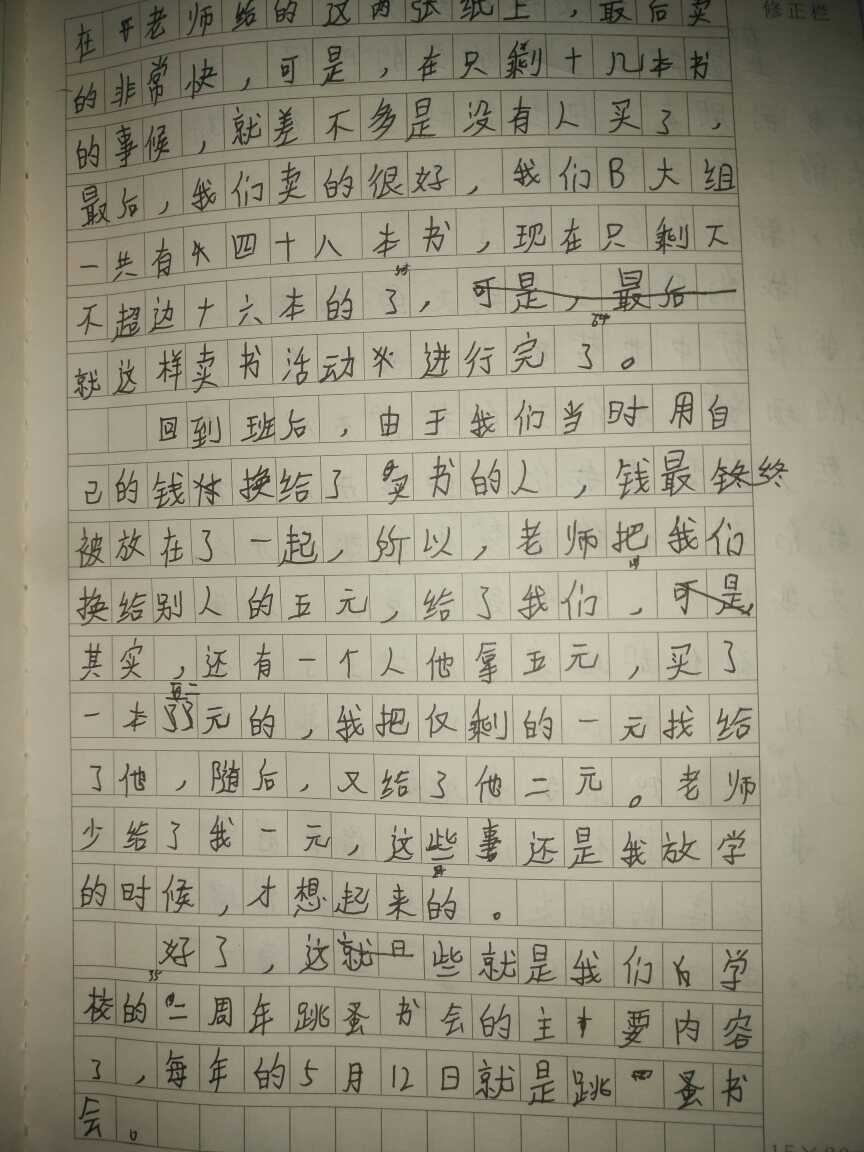 修正栏
在老师给的这两张纸上，最后卖
的非常快，可是，在只剩十几本书
的事候，就差不多是没有人买了，
最后，我们卖的很好，我们B大组
一共有四十八本书，现在只剩下
不超边十六本的了，可是，最后
就这样卖书活动进行完了。
回到班后，由于我们当时用自
己的钱换给了买书的人，钱最终终
被放在了一起，所以，老师把我们
换给别人的五元，给了我们，可是
其实，还有一个人他拿五元，买了
一本元的，我把仅剩的一元找给
了他，随后，又给了他二元。老师
少给了我一元，这些事还是我放学
的时候，才想起来的。
好了，这就些就是我们学
校的二周年跳蚤书会的主要内容
了，每年的5月12日就是跳蚤书
会。